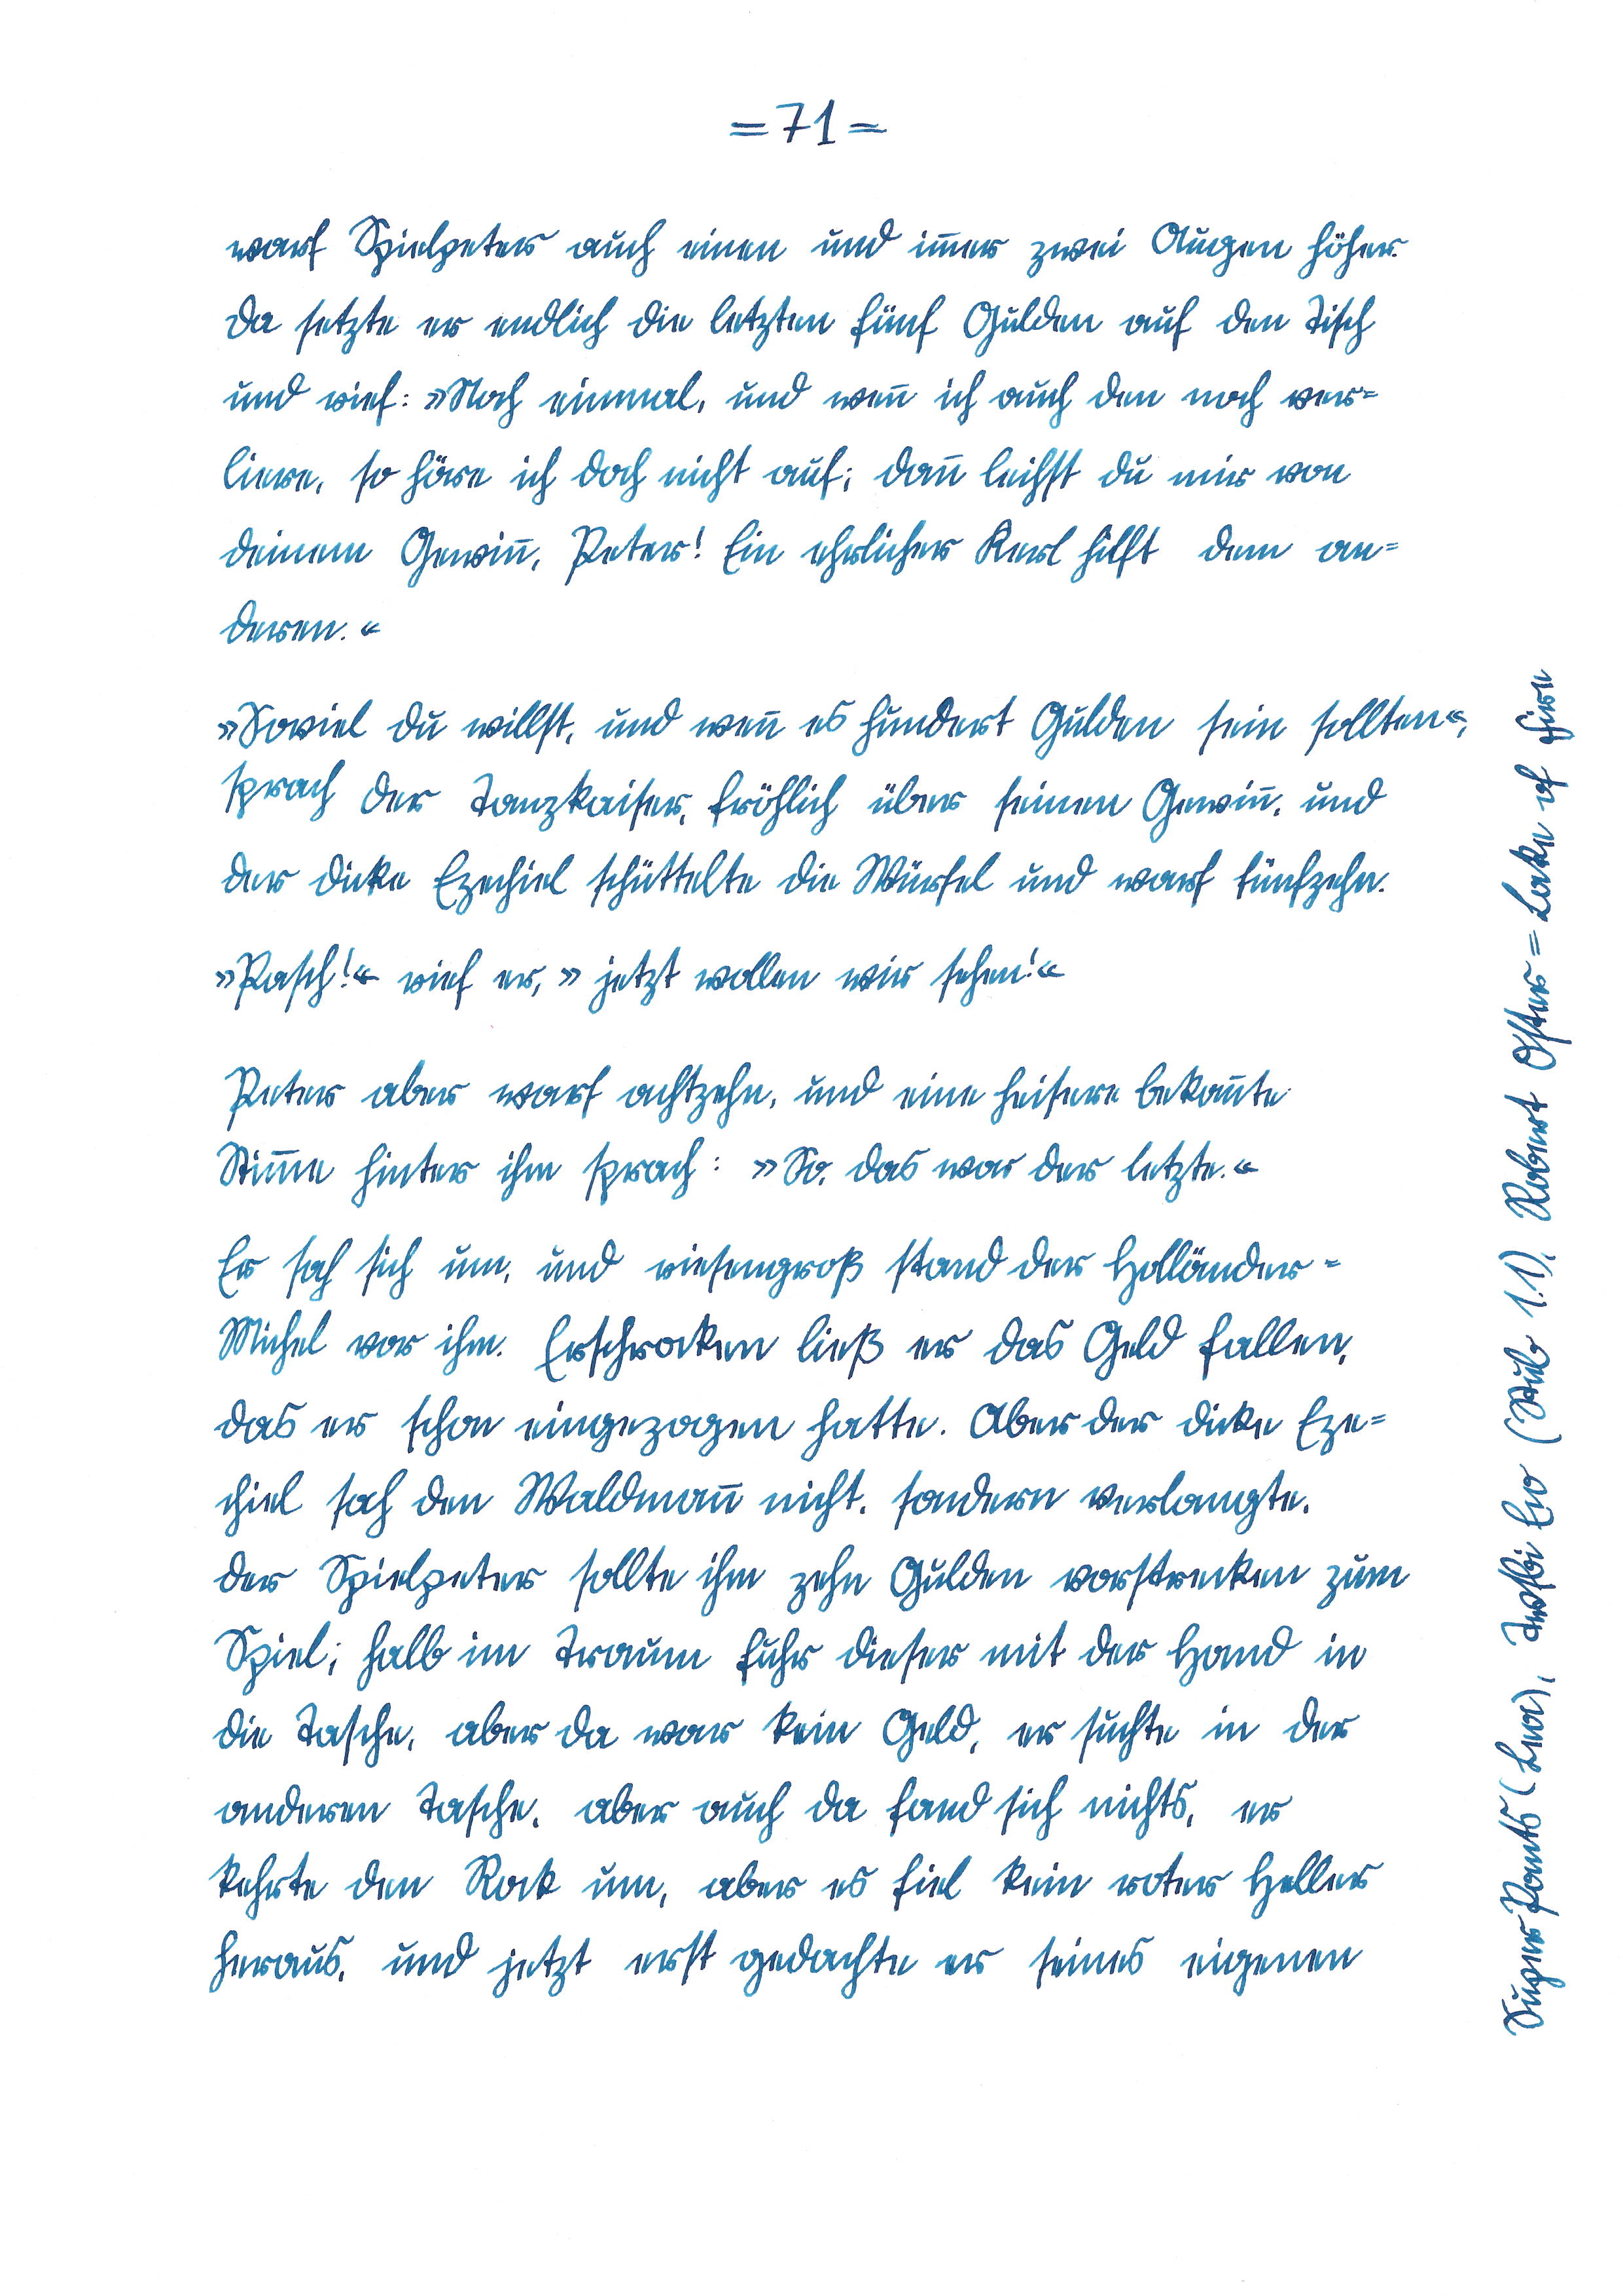 =71=
warf Spielpeter auch einen und im̅er zwei Augen höher.
Da setzte er endlich die letzten fünf Gulden auf den Tisch
und rief: »Noch einmal, und wen̅ ich auch den noch ver=
liere, so höre ich doch nicht auf; dan̅ leihst du mir von
deinem Gewin̅, Peter! Ein ehrlicher Kerl hilft dem an=
deren.«
»Soviel du willst, und wen̅ es hundert Gulden sein sollten«,
sprach der Tanzkaiser, fröhlich über seinen Gewin̅, und
der dicke Ezechiel schüttelte die Würfel und warf fünfzehn.
»Pasch!« rief er, »jetzt wollen wir sehen!«
Peter aber warf achtzehn, und eine heisere bekan̅te
Stim̅e hinter ihm sprach: »So, das war der letzte.«
Er sah sich um, und riesengroß stand der Holländer=
Michel vor ihm. Erschrocken ließ er das Geld fallen,
das er schon eingezogen hatte. Aber der dicke Eze=
chiel sah den Waldman̅ nicht, sondern verlangte,
der Spielpeter sollte ihm zehn Gulden vorstrecken zum
Spiel; halb im Traum fuhr dieser mit der Hand in
die Tasche, aber da war kein Geld, er suchte in der
anderen Tasche, aber auch da fand sich nichts, er
kehrte den Rock um, aber es fiel kein roter Heller
heraus, und jetzt erst gedachte er seines eigenen
Super Pants (Lea), Twsbi Eco (Stub 1.1), Robert Oster = Lake of Fire